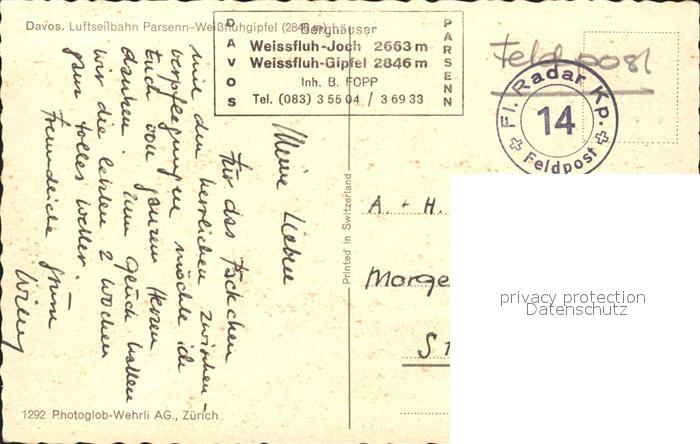 Davos. Luftseilbahn Parsenn-Weißfluhgipfel (2844 m)
DAVOS
Berghäuser
Weissfluh-Joch 2663 m
Weissfluh-Gipfel 2846 m
Inh. B. FOPP
Tel. (083) 3 55 04 / 3 69 33
PARSENN
Feldpost
Fl. Radar Kp.
14
Feldpost
Meine Lieben
Für das Päckchen
mit den herrlichen Zwischen-
verpflegungen möchte ich
Euch von ganzem Herzen
danken. Zum Glück hatten
wir die letzten 2 Wochen
ganz tolles Wetter.
Freundliche Grüsse
Willy
Printed in Switzerland
A. + H.
Morge
St
privacy protection
Datenschutz
1292 Photoglob-Wehrli AG., Zürich